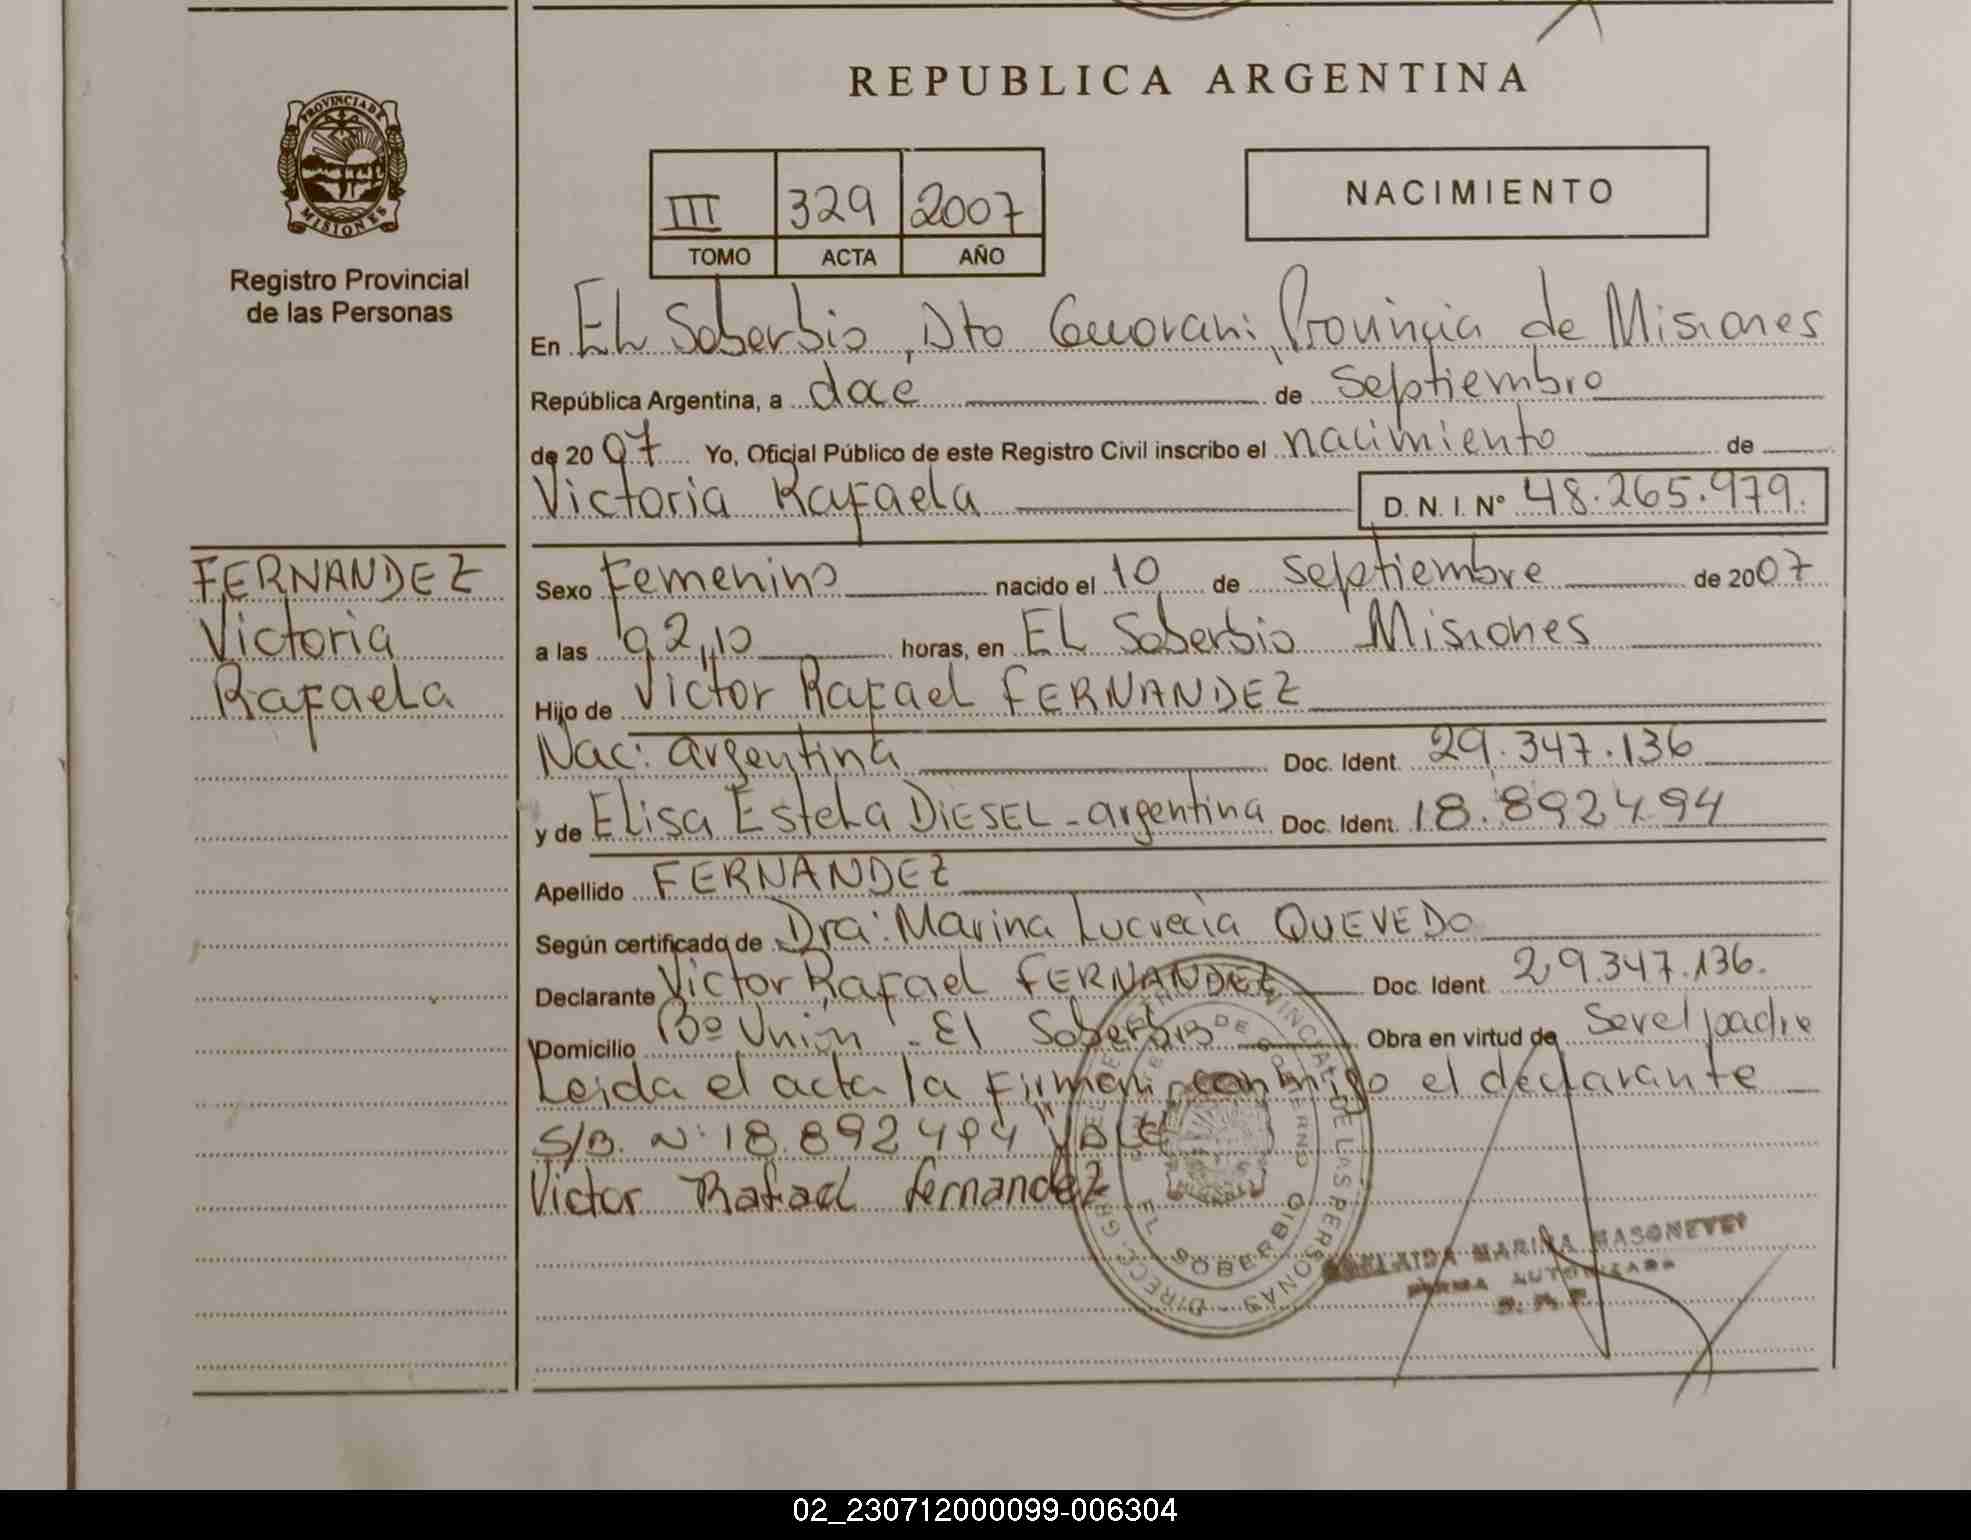 PROVINCIA DE
MISIONES
Registro Provincial
de las Personas
FERNANDEZ
Victoria
Rafaela
REPUBLICA ARGENTINA
III 329 2007
TOMO ACTA AÑO
NACIMIENTO
En EL Soberbio, Dto Guarani, Provincia de Misiones
República Argentina, a doce de Septiembre
de 2007 Yo, Oficial Público de este Registro Civil inscribo el nacimiento de
Victoria Rafaela D. N. I. Nº 48.265.979.
Sexo Femenino nacido el 10 de Septiembre de 2007
a las 02,10 horas, en EL Soberbio Misiones
Hijo de Victor Rafael FERNANDEZ
Nac: argentina Doc. Ident. 29.347.136
y de Elisa Estela DIESEL - argentina Doc. Ident. 18.892494
Apellido FERNANDEZ
Según certificado de Dra: Marina Lucrecia QUEVEDO
Declarante Victor Rafael FERNANDEZ Doc. Ident. 29.347.136.
Domicilio Bº Unión - El Soberbio Obra en virtud de Ser el padre
Leida el acta la firman conmigo el declarante
S/B. Nº: 18.892494 "VALE"
Victor Rafael fernandez
EL SOBERBIO
MARINA MASONEVE
FIRMA AUTORIZADA
02_230712000099-006304